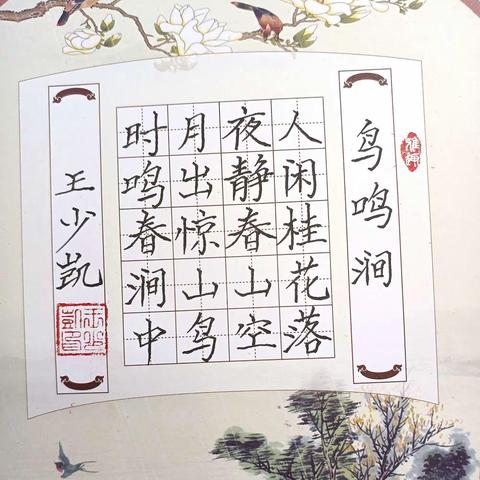 鸟鸣涧
人闲桂花落
夜静春山空
月出惊山鸟
时鸣春涧中
王少凯